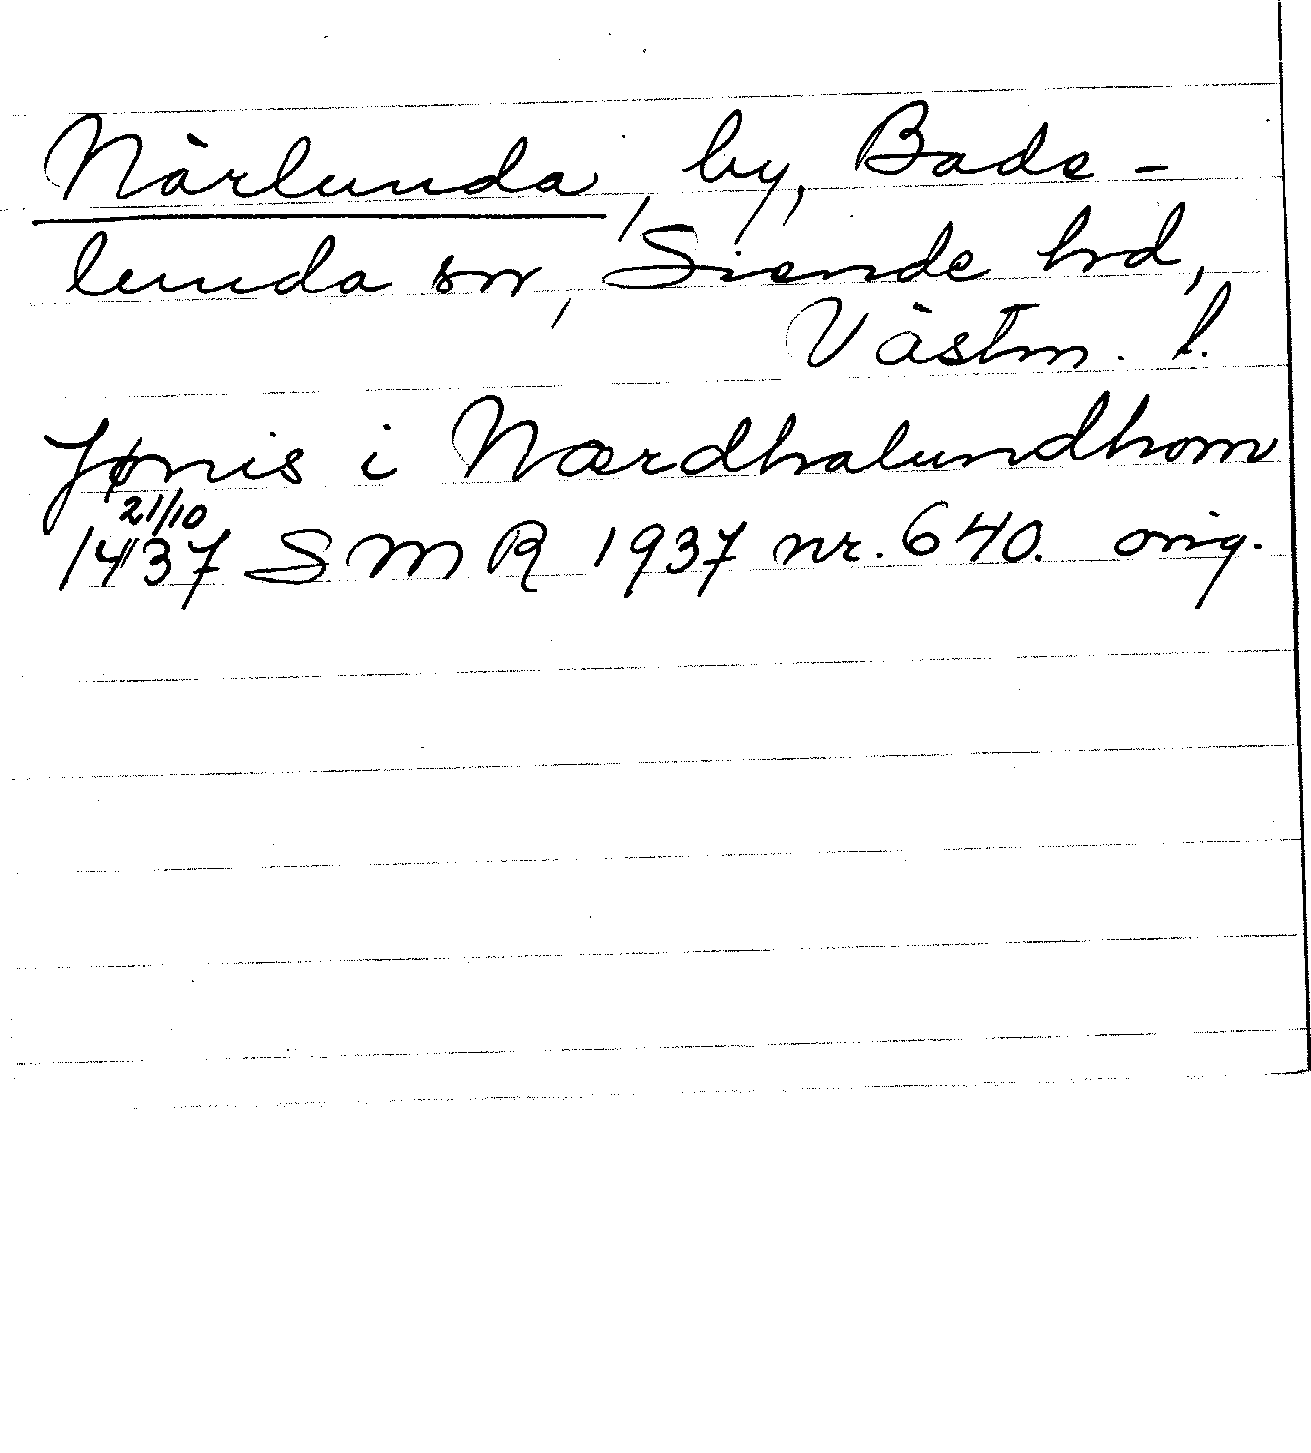 Närlunda, by, Bade-
lunda sn, Siende hrd,
Västm. l.
Jønis i Nærdhalundhom
21/10
1437 SMR 1937 nr. 640. orig.